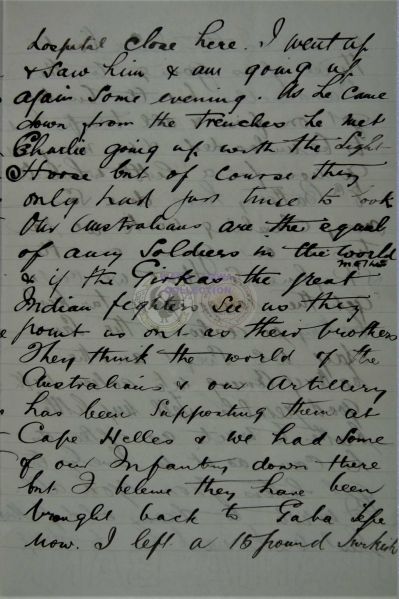 hospital close here. I went up
& saw him & am going up
again some evening. As he came
down from the trenches he met
Charlie going up with the Light
Horse but of course they
only had just time to look
Our Australians are the equal
of any Soldiers in the world
& if the Girkas the great
Indian fighters see us they
point us out as their brothers
They think the world of the
Australians & our Artillery
has been supporting them at
Cape Helles & we had some
of our Infantry down there
but I beleive they have been
brought back to Gaba Tepe
now. I left a 15 pound Turkish
COLLECTION